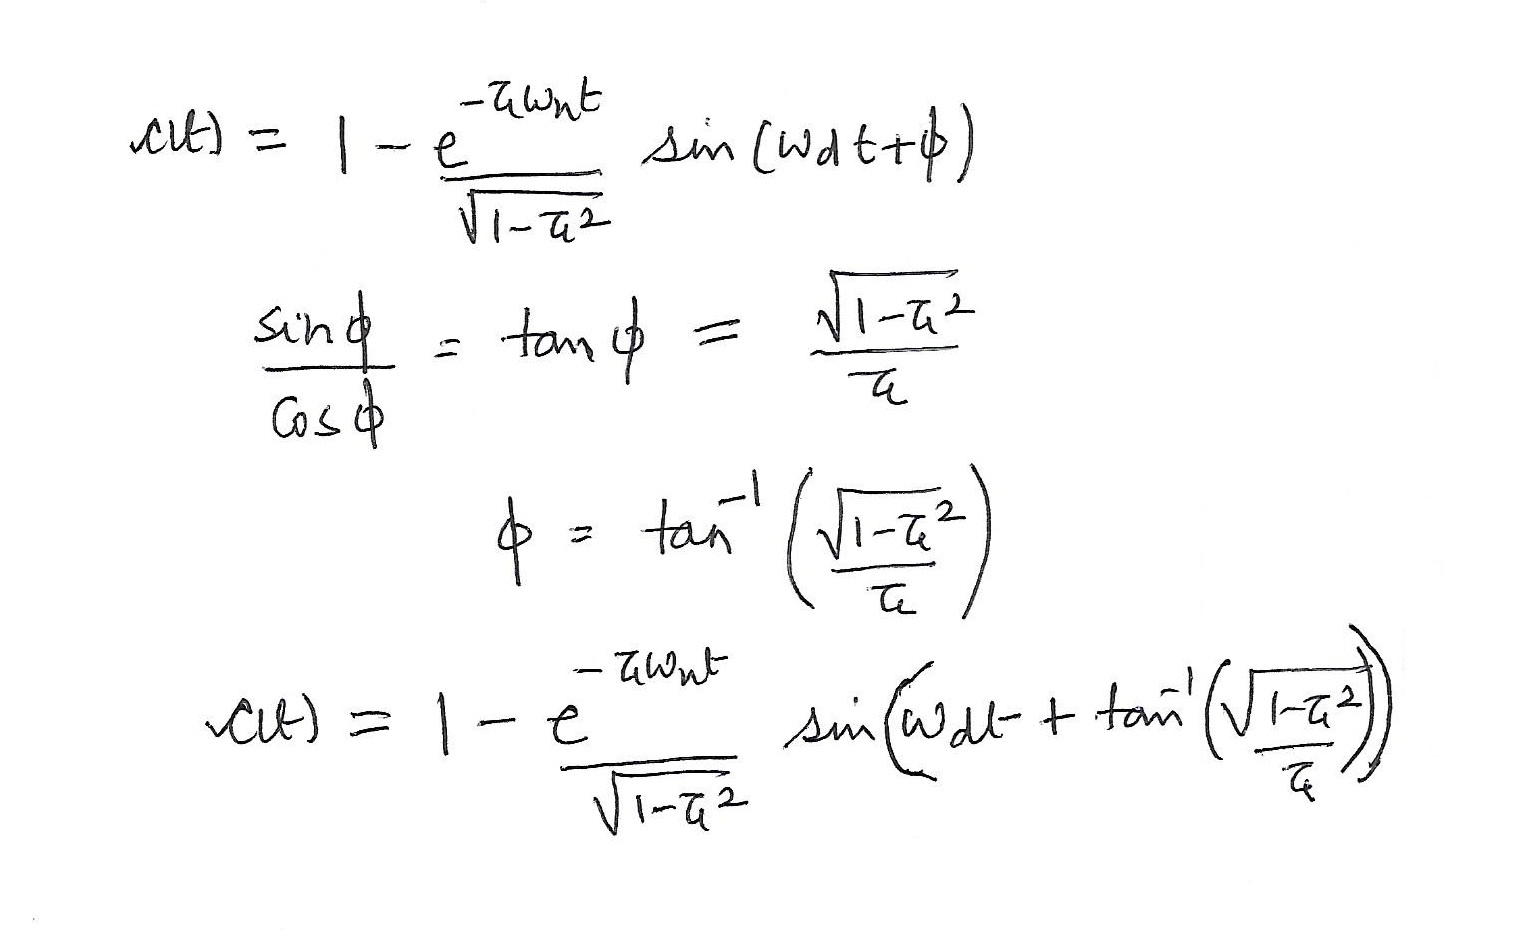 c(t) = 1 - e^{-ζωnt} / √(1-ζ²) sin(ωdt+φ)
sinφ / cosφ = tanφ = √(1-ζ²) / ζ
φ = tan⁻¹(√(1-ζ²) / ζ)
c(t) = 1 - e^{-ζωnt} / √(1-ζ²) sin(ωdt + tan⁻¹(√(1-ζ²) / ζ))